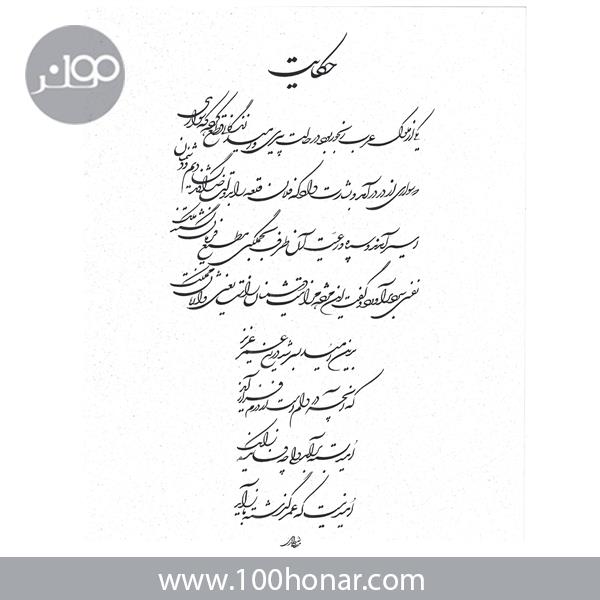 ۱۰۰هنر
حکایت
یکی از ملوک عرب رنجور بود در حالت پیری و امید زندگانی قطع کرده که سواری
از در درآمد و بشارت داد که فلان قلعه را به دولت خداوند گشادیم و دشمنان
اسیر آمدند و سپاه و رعیت آن طرف بجملگی مطیع فرمان گشتند ملک
نفسی سرد برآورد و گفت این مژده مرا نیست دشمنانم راست یعنی وارثان مملکت
بدین امید بسر شد دریغ عمر عزیز
که آنچه در دلم است از درم فراز آید
امید بسته برآمد ولی چه فایده زانک
امید نیست که عمر گذشته باز آید
www.100honar.com